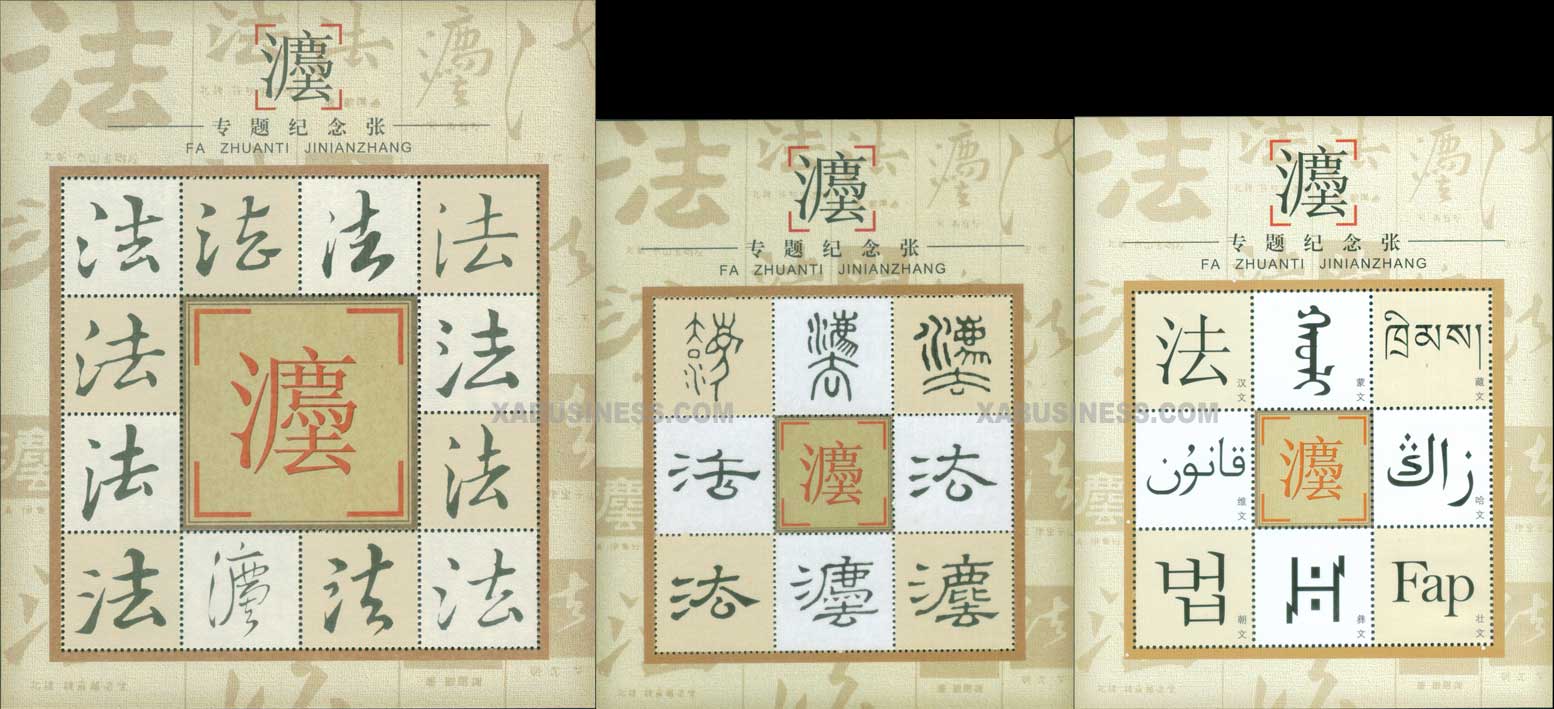 灋
专题纪念张
FA ZHUANTI JINIANZHANG
法 法 法 法
法 灋 法
法 法
法 灋 法 法
灋
专题纪念张
FA ZHUANTI JINIANZHANG
灋 灋
法 灋 法
法 灋 灋
XABUSINESS.COM
灋
专题纪念张
FA ZHUANTI JINIANZHANG
法 汉文 蒙文 ཁྲིམས། 藏文
قانۇن 维文 灋 زاڭ 哈文
법 朝文 彝文 Fap 壮文
XABUSINESS.COM